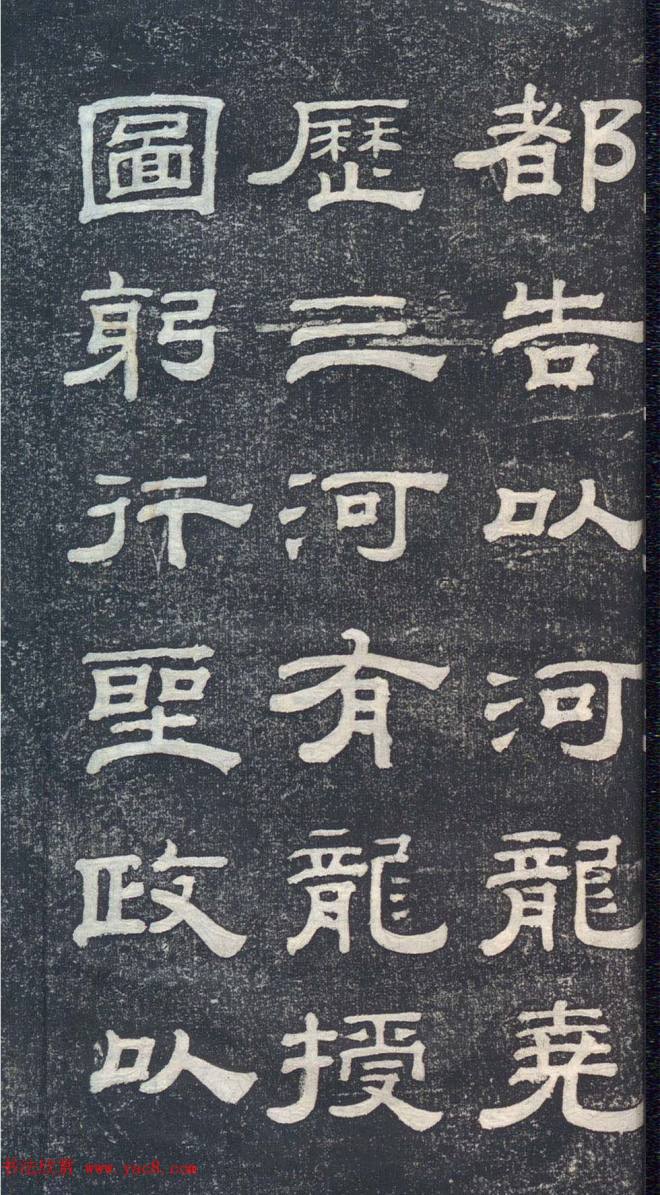 都告以河龍堯
歷三河有龍授
圖躬行聖政以
书法欣赏 www.yac8.com